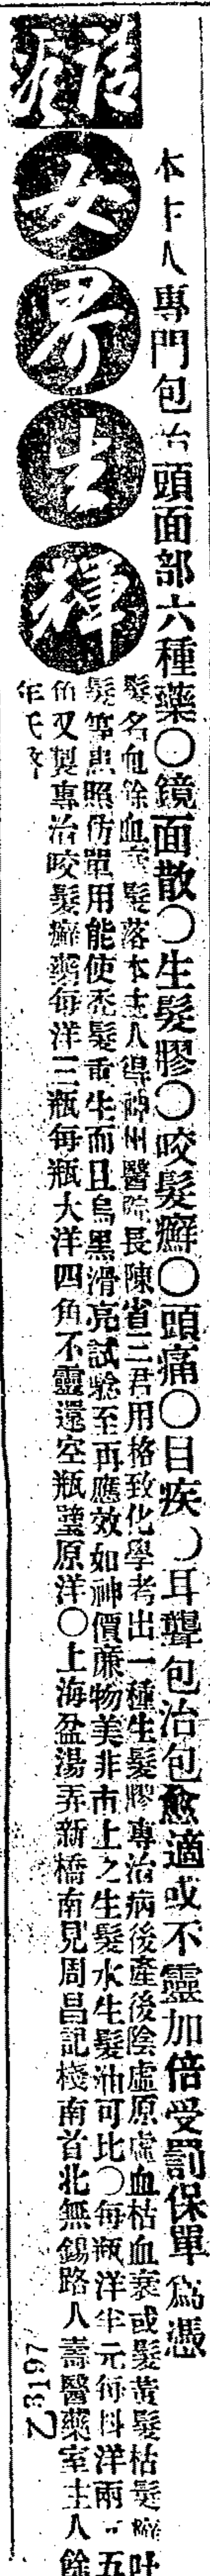 女界生輝
本主人專門包治頭面部六種藥〇鏡面散〇生髮膠〇咬髮癬〇頭痛〇目疾〇耳聾包治包愈適或不靈加倍受罰保單為憑
髮名血餘血衰髮落本主人得神州醫院長陳省三君用格致化學考出一種生髮膠專治病後產後陰虛原虛血枯血衰或髮黃髮枯髮癬吐
髮等患照仿單用能使禿髮重生而且烏黑滑亮試驗至再應效如神價廉物美非市上之生髮水生髮油可比〇每瓶洋半元每料洋兩元五
角又製專治咬髮癬藥每洋三瓶每瓶大洋四角不靈還空瓶璧原洋〇上海盆湯弄新橋南見周昌記棧南首北無錫路人壽醫藥室主人餘
年氏啓
Z8197